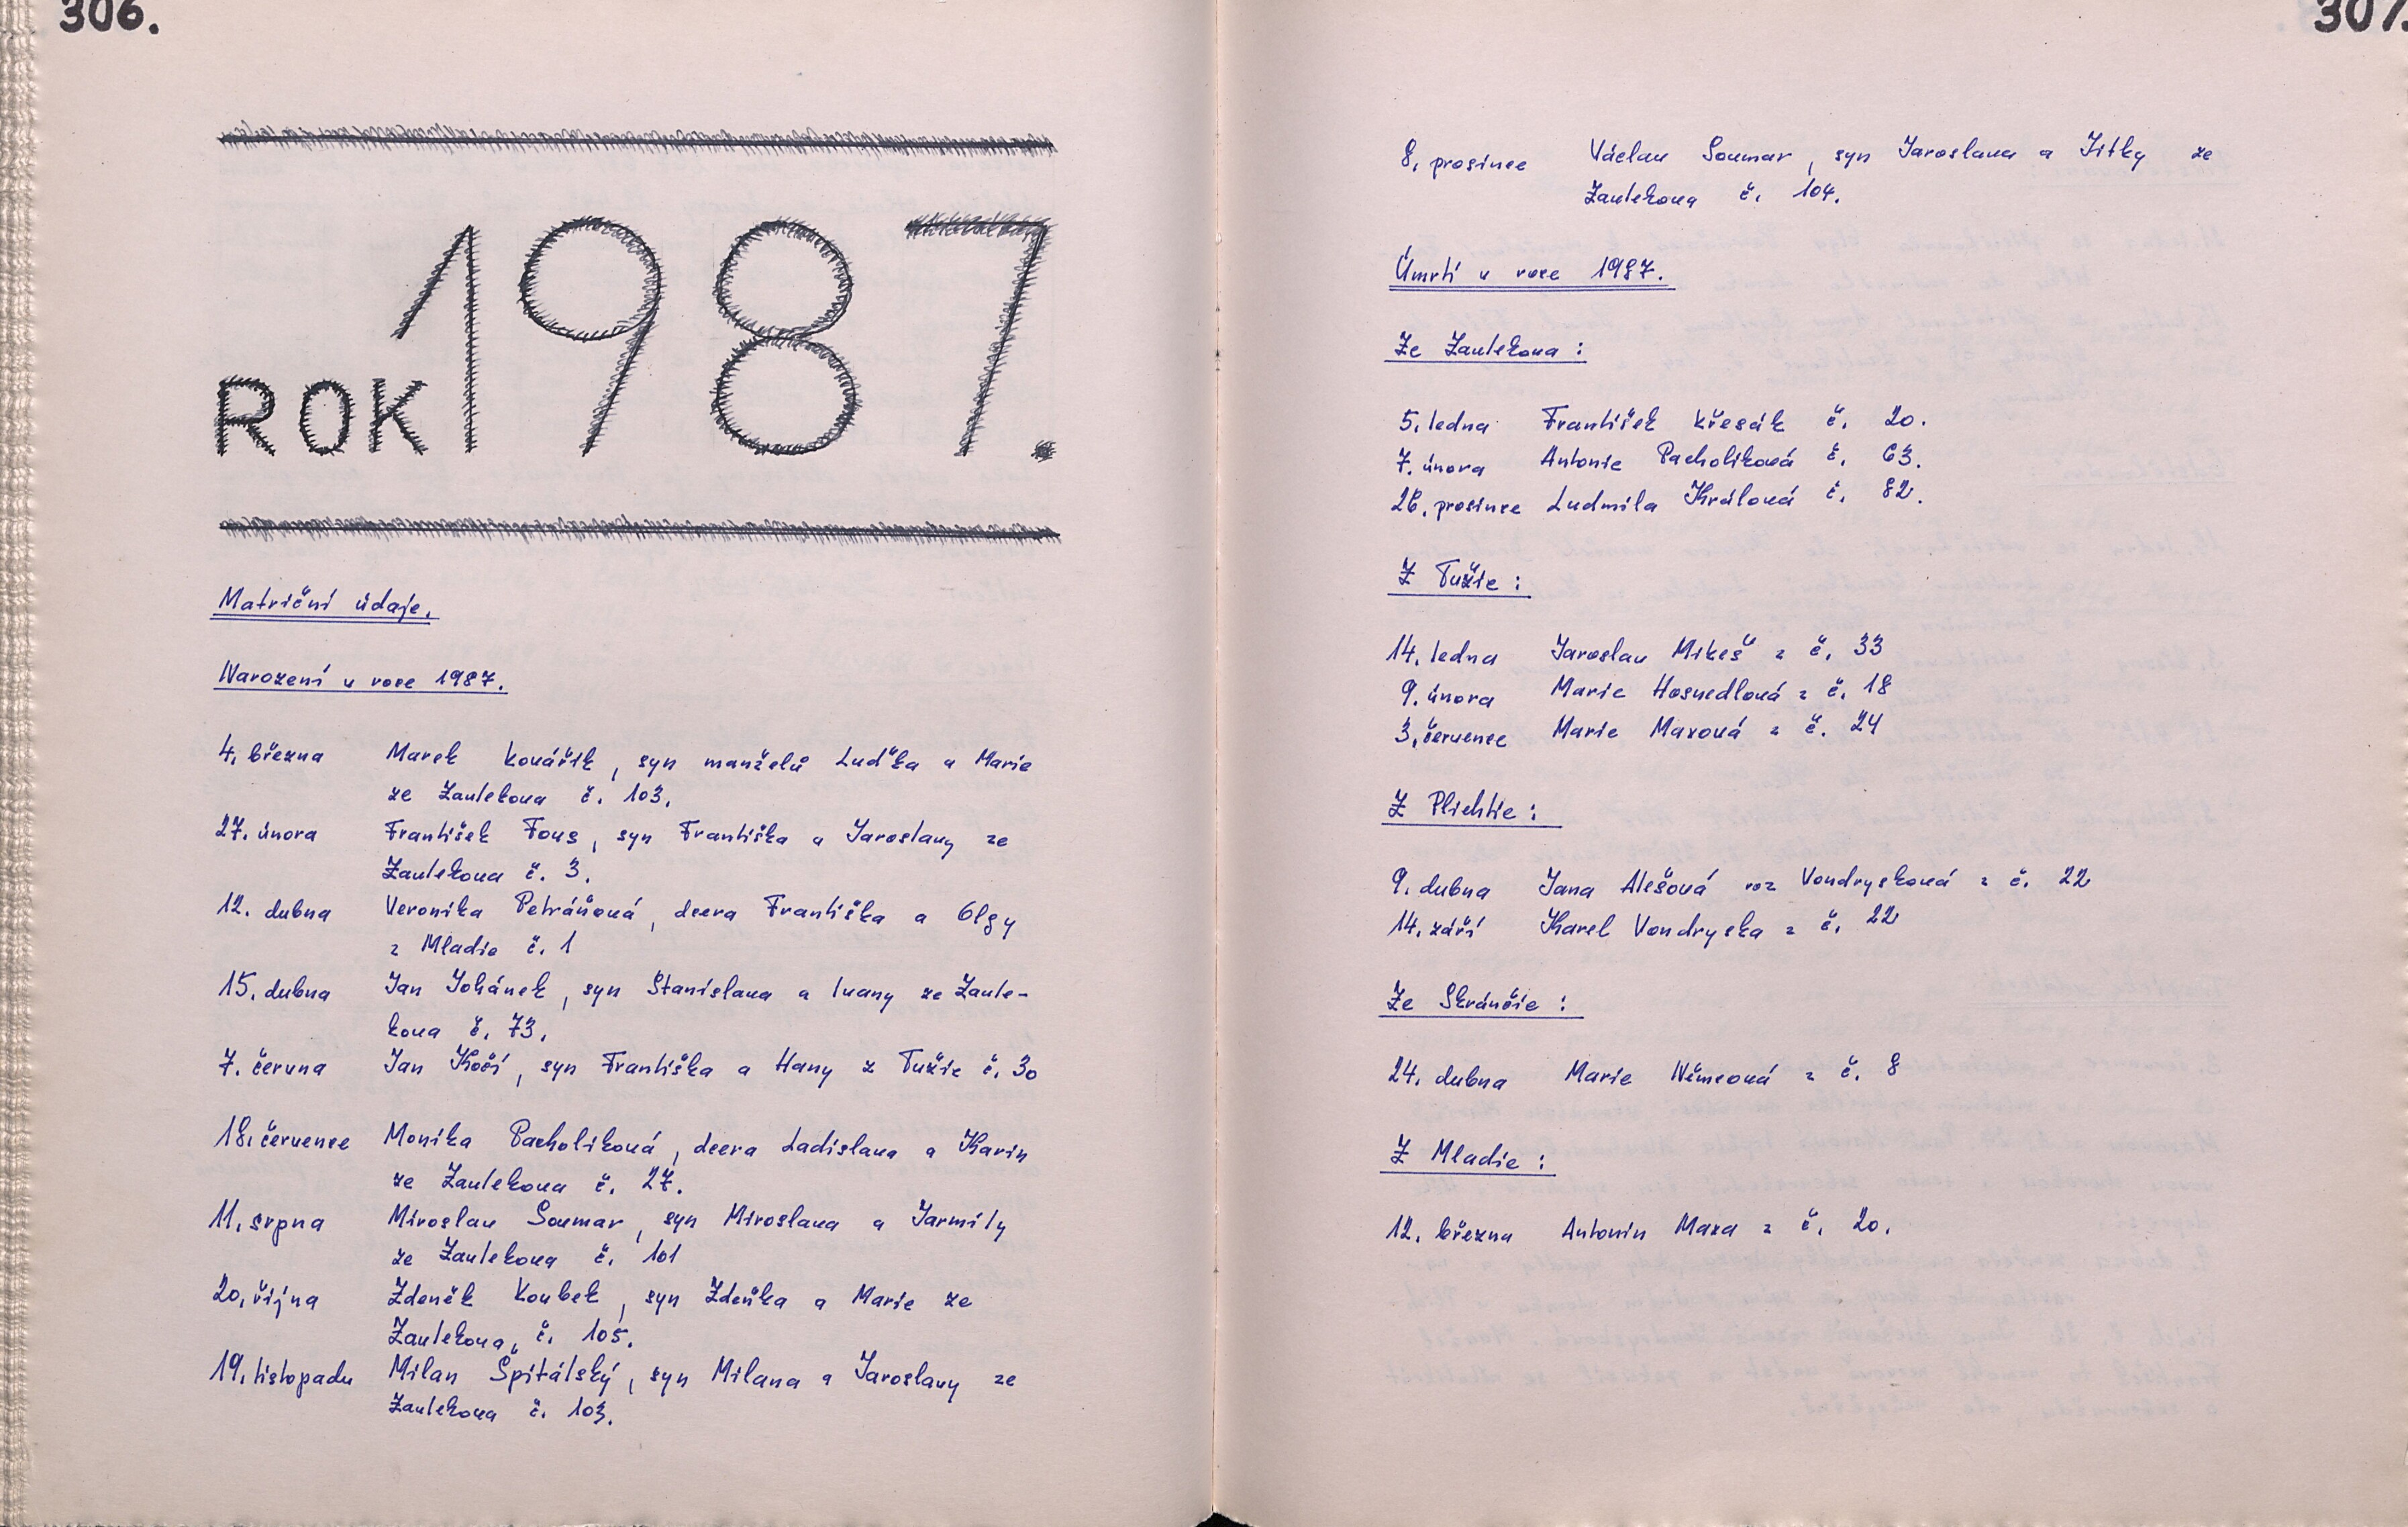 306.
ROK 1987.
Matriční údaje.
Narození v roce 1987.
4. března Marek Kovářík, syn manželů Luďka a Marie
ze Zavlekova č. 103.
27. února František Fous, syn Františka a Jaroslavy ze
Zavlekova č. 3.
12. dubna Veronika Petráňová, dcera Františka a Olgy
z Mladic č. 1
15. dubna Jan Johánek, syn Stanislava a Ivany ze Zavle-
kova č. 73.
7. června Jan Kočí, syn Františka a Hany z Tužic č. 30
18. července Monika Pacholíková, dcera Ladislava a Karin
ze Zavlekova č. 27.
11. srpna Miroslav Soumar, syn Miroslava a Jarmily
ze Zavlekova č. 101
20. října Zdeněk Koubek, syn Zdeňka a Marie ze
Zavlekova, č. 105.
19. listopadu Milan Špitálský, syn Milana a Jaroslavy ze
Zavlekova č. 103.
307.
8. prosince Václav Soumar, syn Jaroslava a Jitky ze
Zavlekova č. 104.
Úmrtí v roce 1987.
Ze Zavlekova :
5. ledna František Křesák č. 20.
7. února Antonie Pacholíková č. 63.
26. prosince Ludmila Králová č. 82.
Z Tužic :
14. ledna Jaroslav Mikeš z č. 33
9. února Marie Hosnedlová z č. 18
3. července Marie Maxová z č. 24
Z Plichtic :
9. dubna Jana Alešová roz Vondrysková z č. 22
14. září Karel Vondryska z č. 22
Ze Skránčic :
24. dubna Marie Němcová z č. 8
Z Mladic :
12. března Antonín Maxa z č. 20.